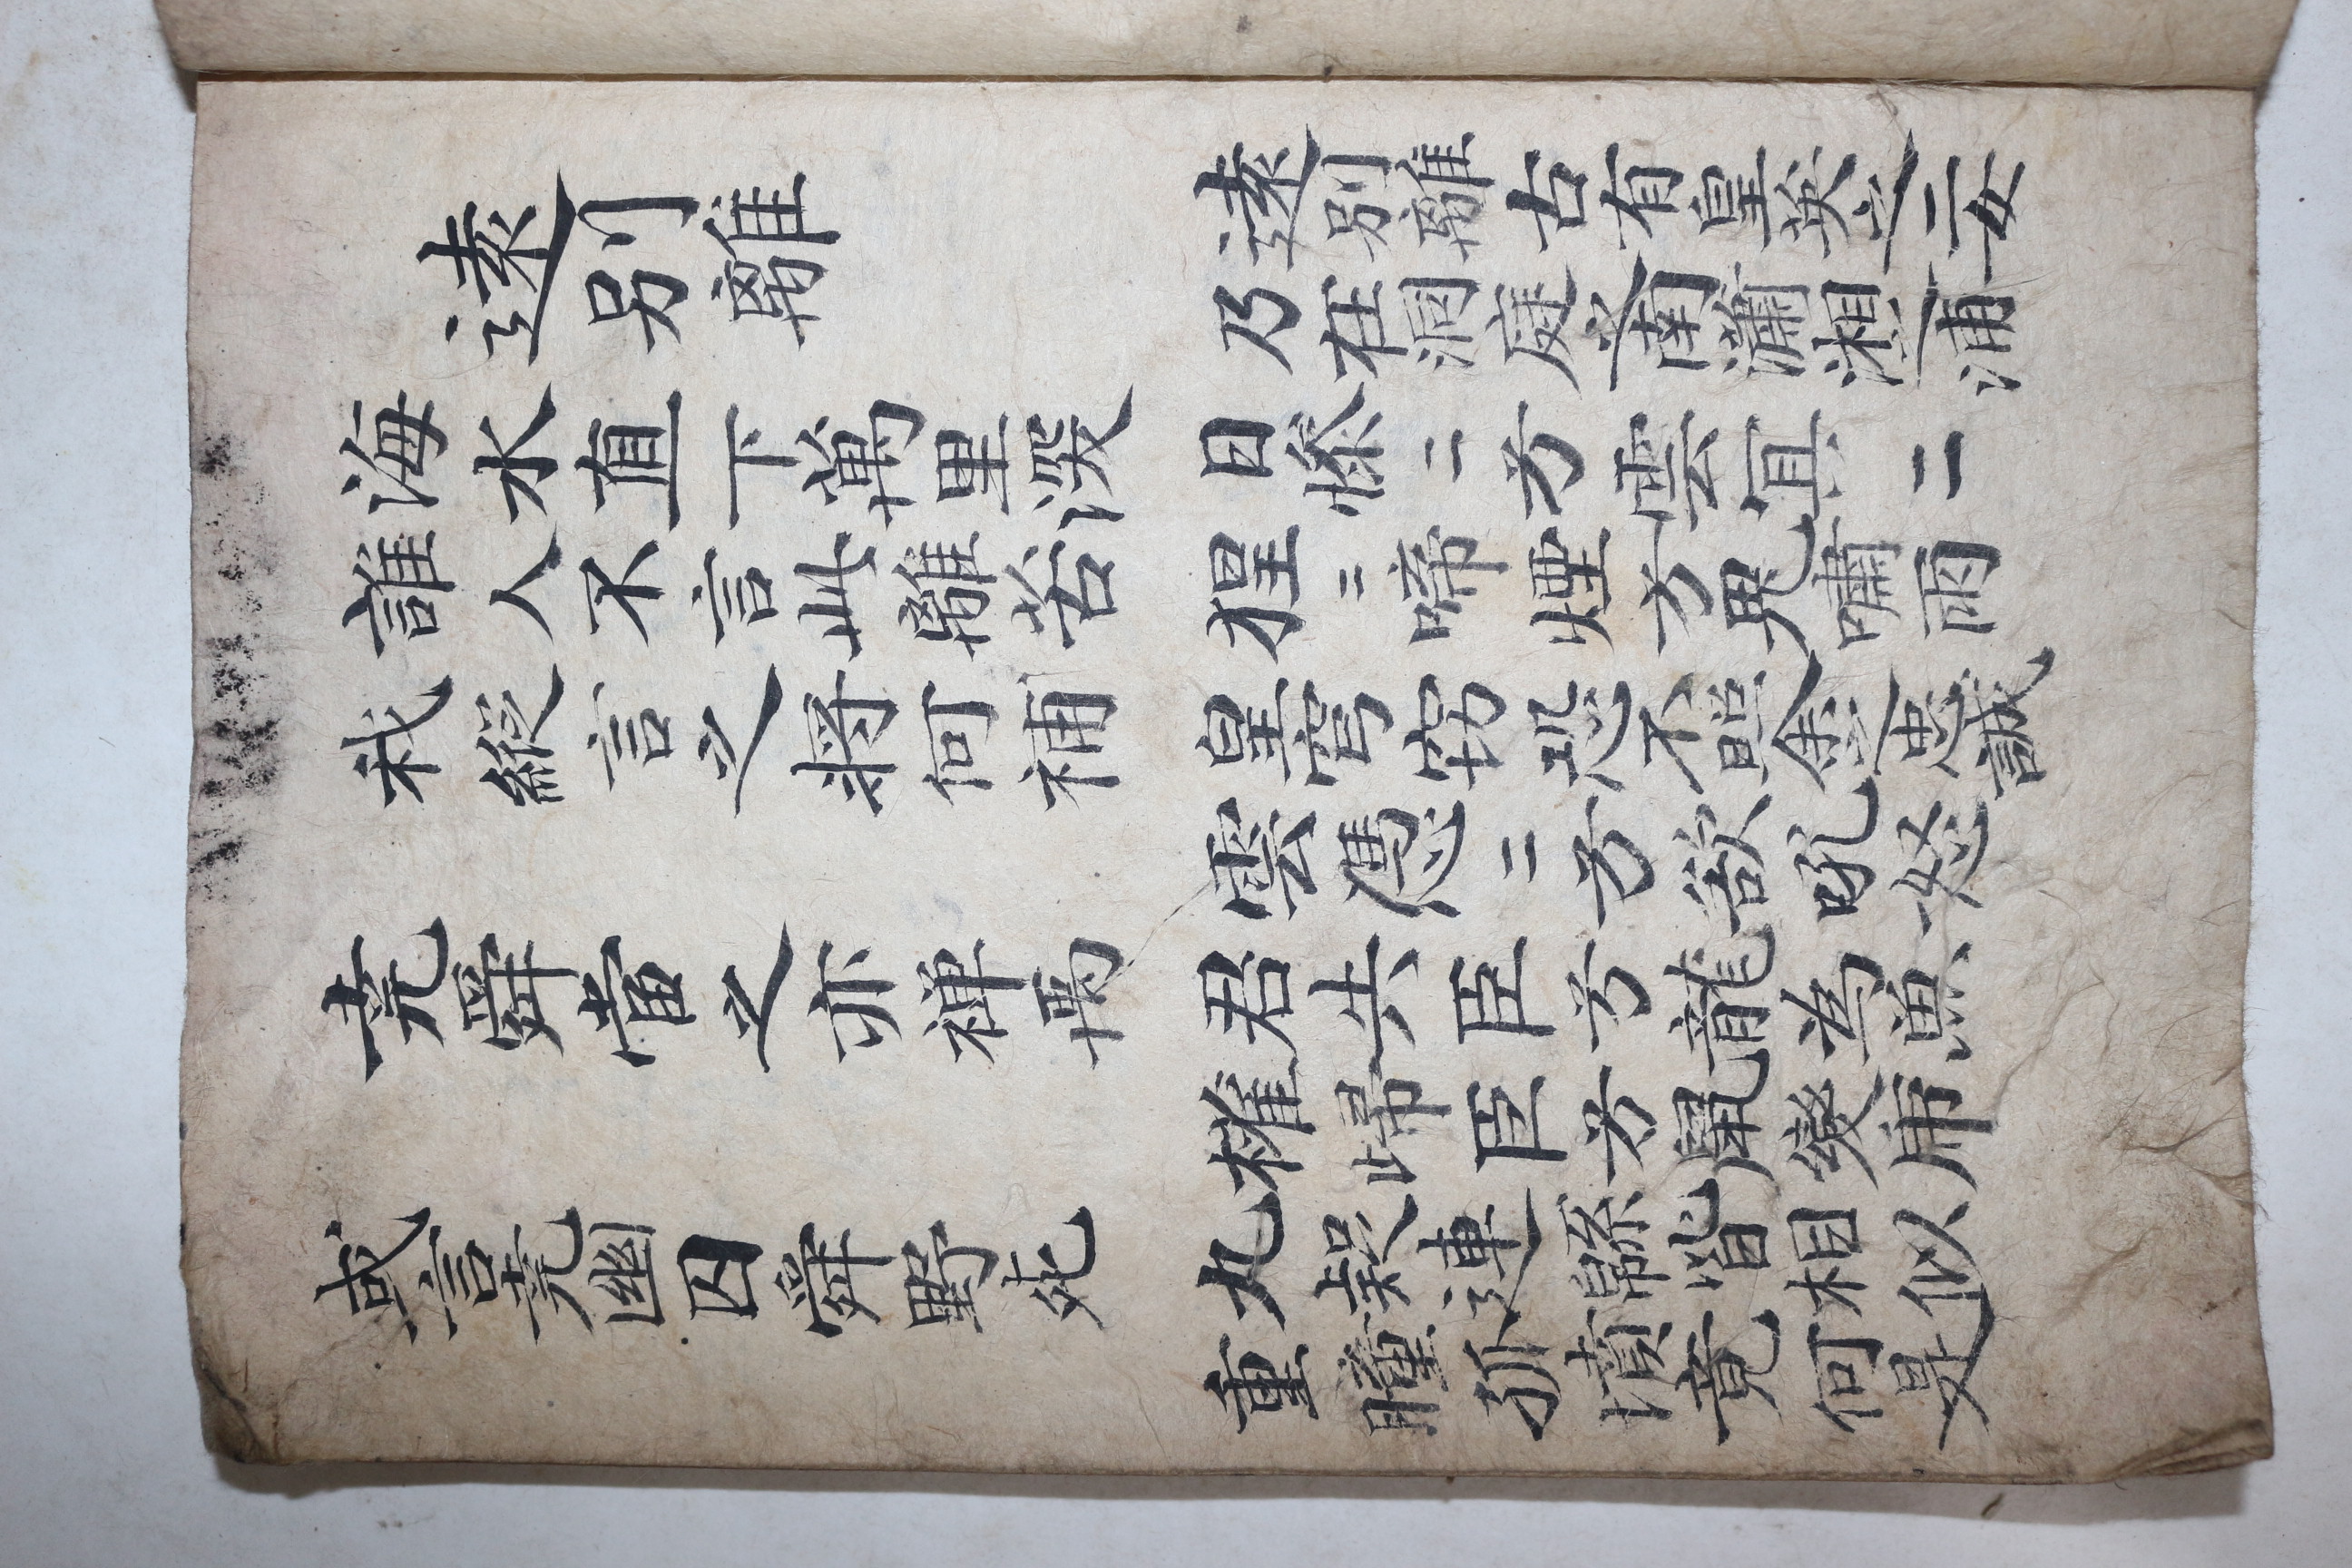 遠別離
遠別離古有皇英之二女
乃在洞庭之南瀟湘之浦
海水直下萬里深 日慘〻兮雲冥〻
誰人不言此離苦 猩〻啼煙兮鬼嘯雨
我縱言之將何補 皇穹竊恐不照余之忠誠
雲憑〻兮欲吼怒
堯舜當之亦禪禹 君失臣兮龍為魚
權歸臣兮鼠變虎
或言堯幽囚舜野死 九疑連緜皆相似
重瞳孤墳竟何是